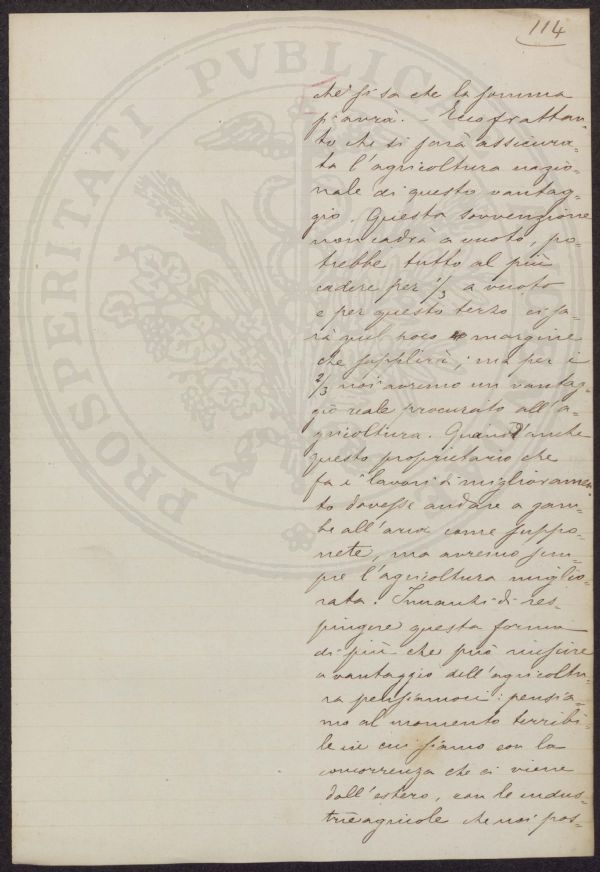 114
PROSPERITATI PVBLICAE
chè si sa che la somma
si avrà. – Ecco frattan-
to che si sarà assicura-
ta l'agricoltura nazio-
nale di questo vantag-
gio. Questa sovvenzione
non cadrà a vuoto, po-
trebbe tutto al più
cadere per 1/3 a vuoto
e per questo terzo ci sa-
rà quel poco margine
che supplirà; ma per i
2/3 noi avremo un vantag-
gio reale procurato all'a-
gricoltura. Quand'anche
questo proprietario che
fa i lavori di miglioramen-
to dovesse andare a gam-
be all'aria come suppo-
nete, ma avremo sem-
pre l'agricoltura miglio-
rata. Innanzi di res-
pingere questa forma
di più che può riuscire
a vantaggio dell'agricoltu-
ra pensiamoci: pensia-
mo al momento terribi-
le in cui siamo con la
concorrenza che ci viene
dall'estero, con le indus-
trie agricole che noi pos-